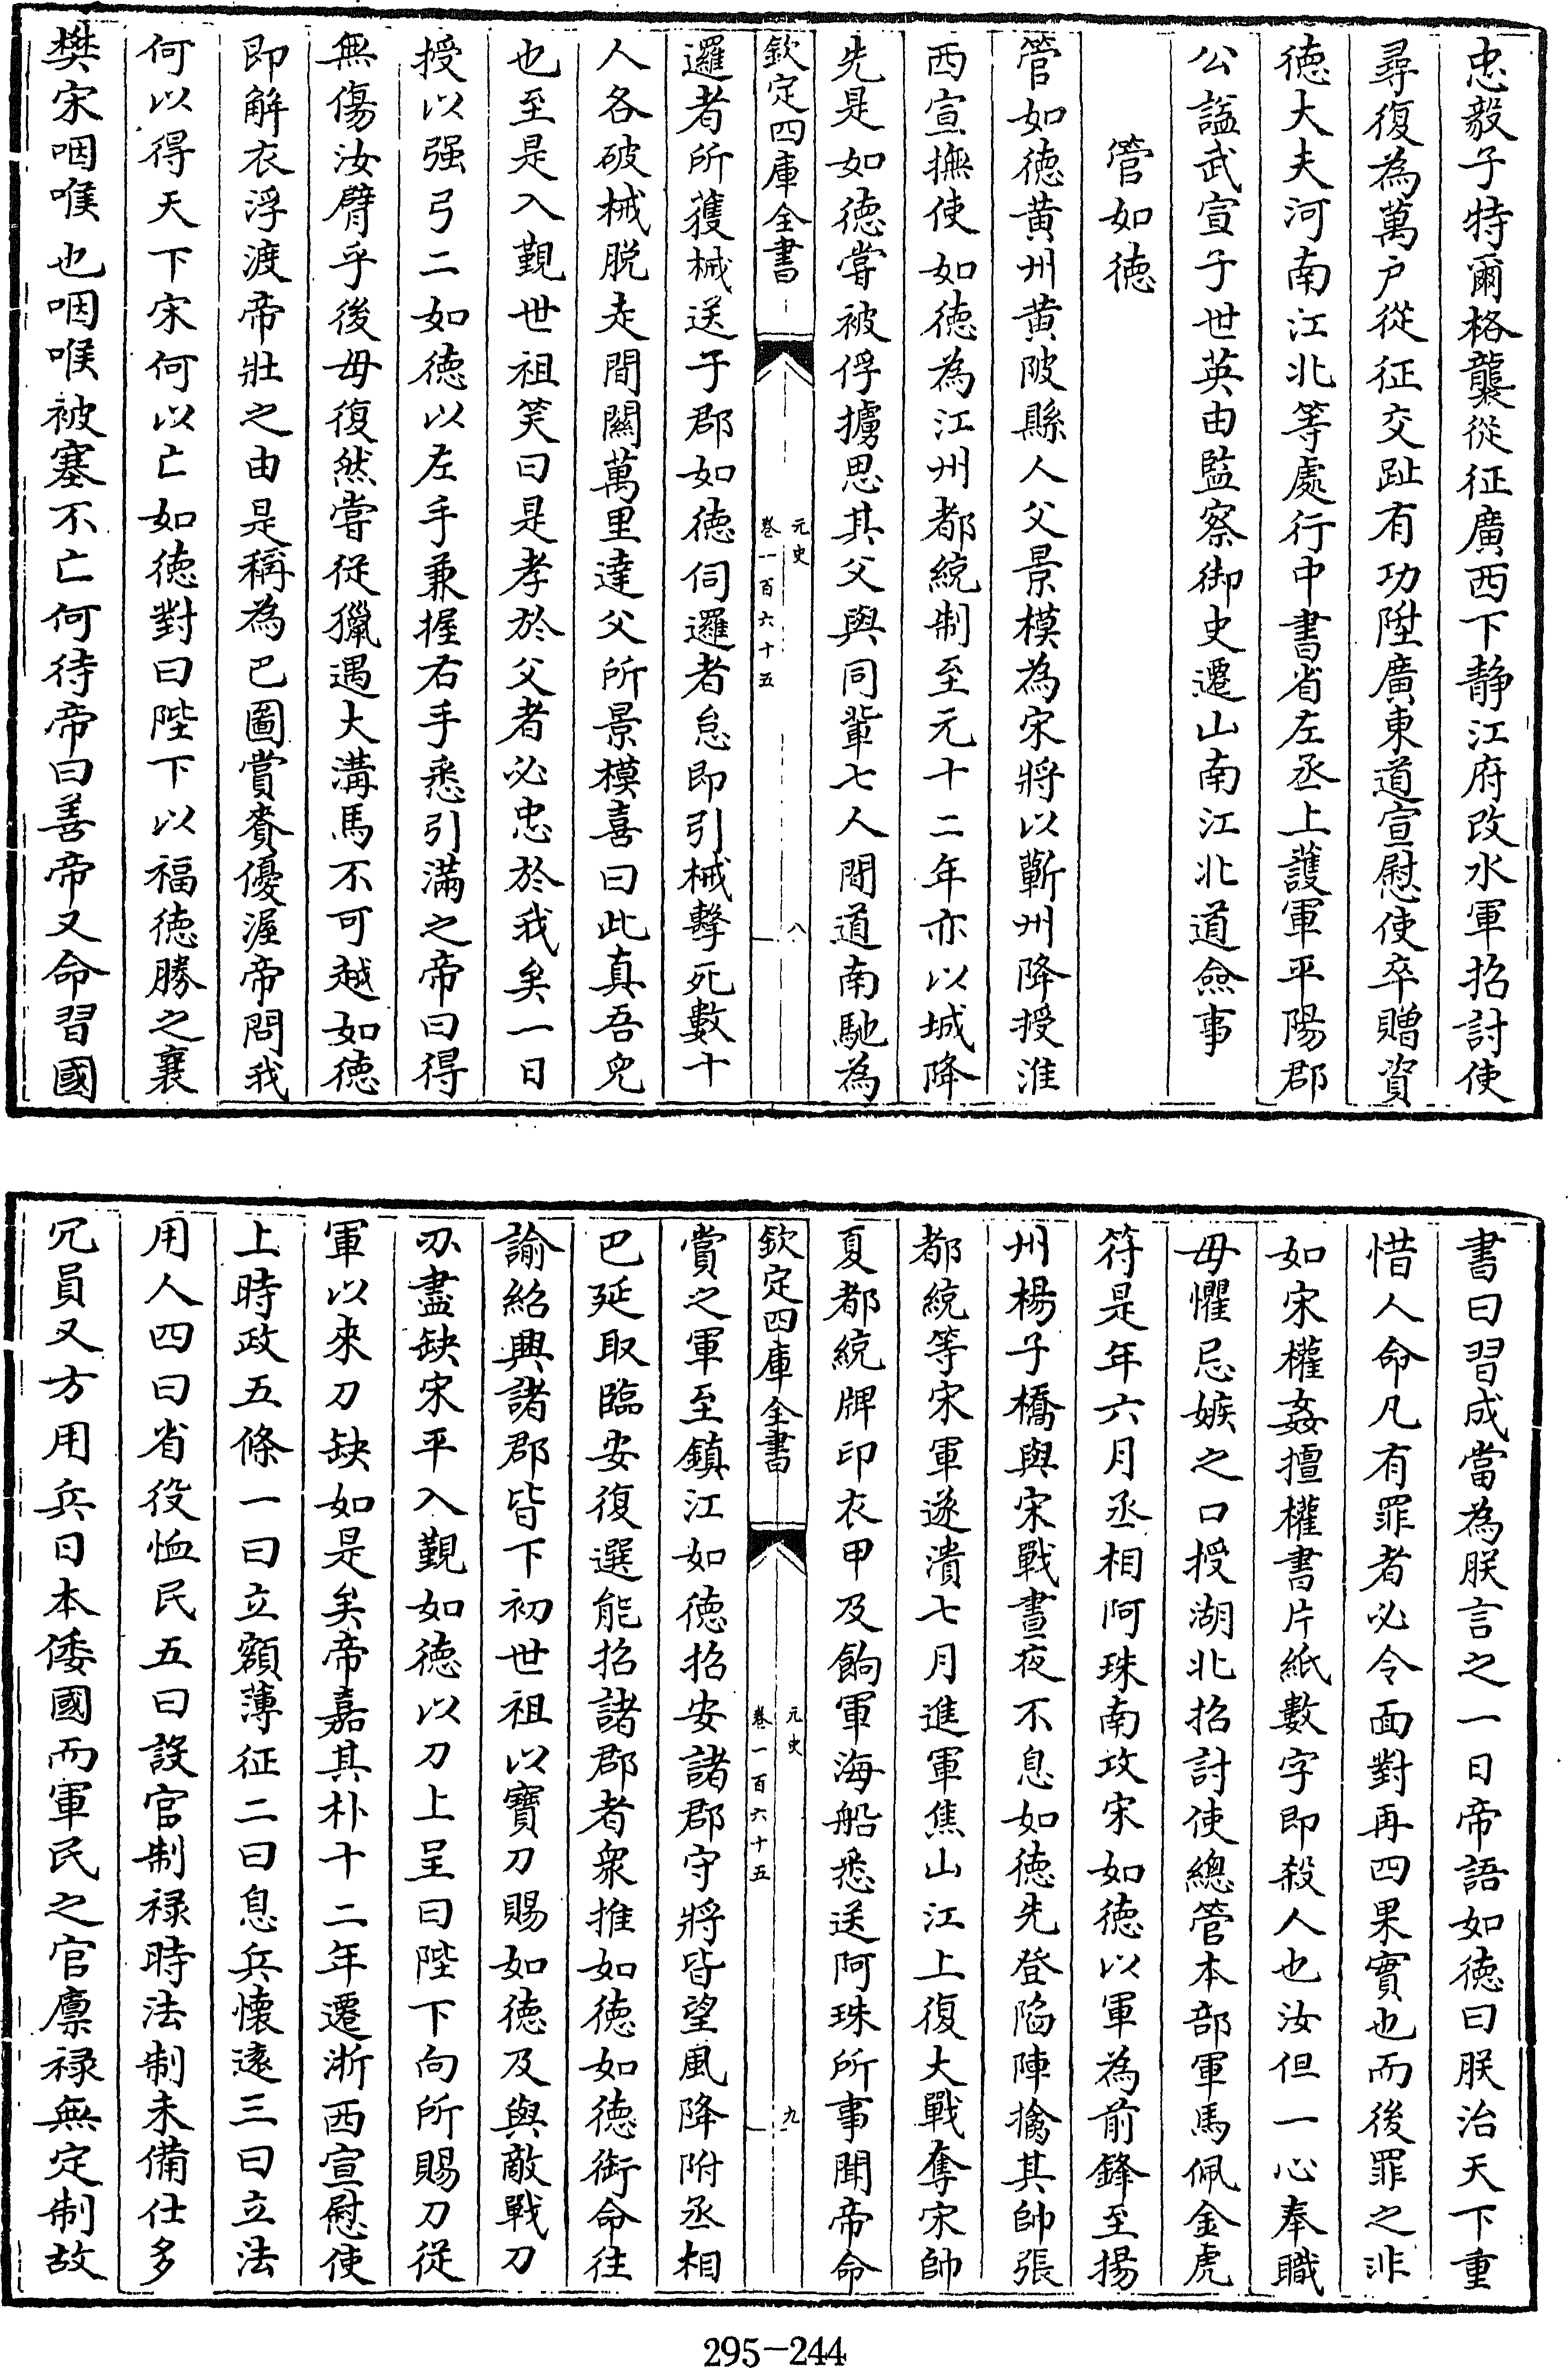 忠毅子特爾格襲從征廣西下静江府改水軍招討使
尋復為萬户從征交趾有功陞廣東道宣慰使卒贈資
徳大夫河南江北等處行中書省左丞上護軍平陽郡
公諡武宣子世英由監察御史遷山南江北道僉事
管如徳
管如徳黄州黄陂縣人父景模為宋將以蘄州降授淮
西宣撫使如徳為江州都統制至元十二年亦以城降
先是如徳嘗被俘擄思其父與同輩七人間道南馳為
欽定四庫全書
元史
卷一百六十五
八
邏者所獲械送于郡如徳伺邏者怠即引械擊死數十
人各破械脱走間關萬里達父所景模喜曰此真吾兒
也至是入覲世祖笑曰是孝於父者必忠於我矣一日
授以强弓二如徳以左手兼握右手悉引滿之帝曰得
無傷汝臂乎後毋復然嘗從獵遇大溝馬不可越如徳
即解衣浮渡帝壯之由是稱為巴圖賞賚優渥帝問我
何以得天下宋何以亡如徳對曰陛下以福徳勝之襄
樊宋咽喉也咽喉被塞不亡何待帝曰善帝又命習國
書曰習成當為朕言之一日帝語如徳曰朕治天下重
惜人命凡有罪者必令面對再四果實也而後罪之非
如宋權姦擅權書片紙數字即殺人也汝但一心奉職
毋懼忌嫉之口授湖北招討使總管本部軍馬佩金虎
符是年六月丞相阿珠南攻宋如徳以軍為前鋒至揚
州楊子橋與宋戰晝夜不息如徳先登陷陣擒其帥張
都統等宋軍遂潰七月進軍焦山江上復大戰奪宋帥
夏都統牌印衣甲及餉軍海船悉送阿珠所事聞帝命
欽定四庫全書
元史
卷一百六十五
九
賞之軍至鎮江如徳招安諸郡守將皆望風降附丞相
巴延取臨安復選能招諸郡者衆推如徳如徳銜命往
諭紹興諸郡皆下初世祖以寳刀賜如徳及與敵戰刀
刃盡缺宋平入覲如徳以刀上呈曰陛下向所賜刀從
軍以來刀缺如是矣帝嘉其朴十二年遷浙西宣慰使
上時政五條一曰立額薄征二曰息兵懷遠三曰立法
用人四曰省役恤民五曰設官制禄時法制未備仕多
冗員又方用兵日本倭國而軍民之官廪禄無定制故
295-244